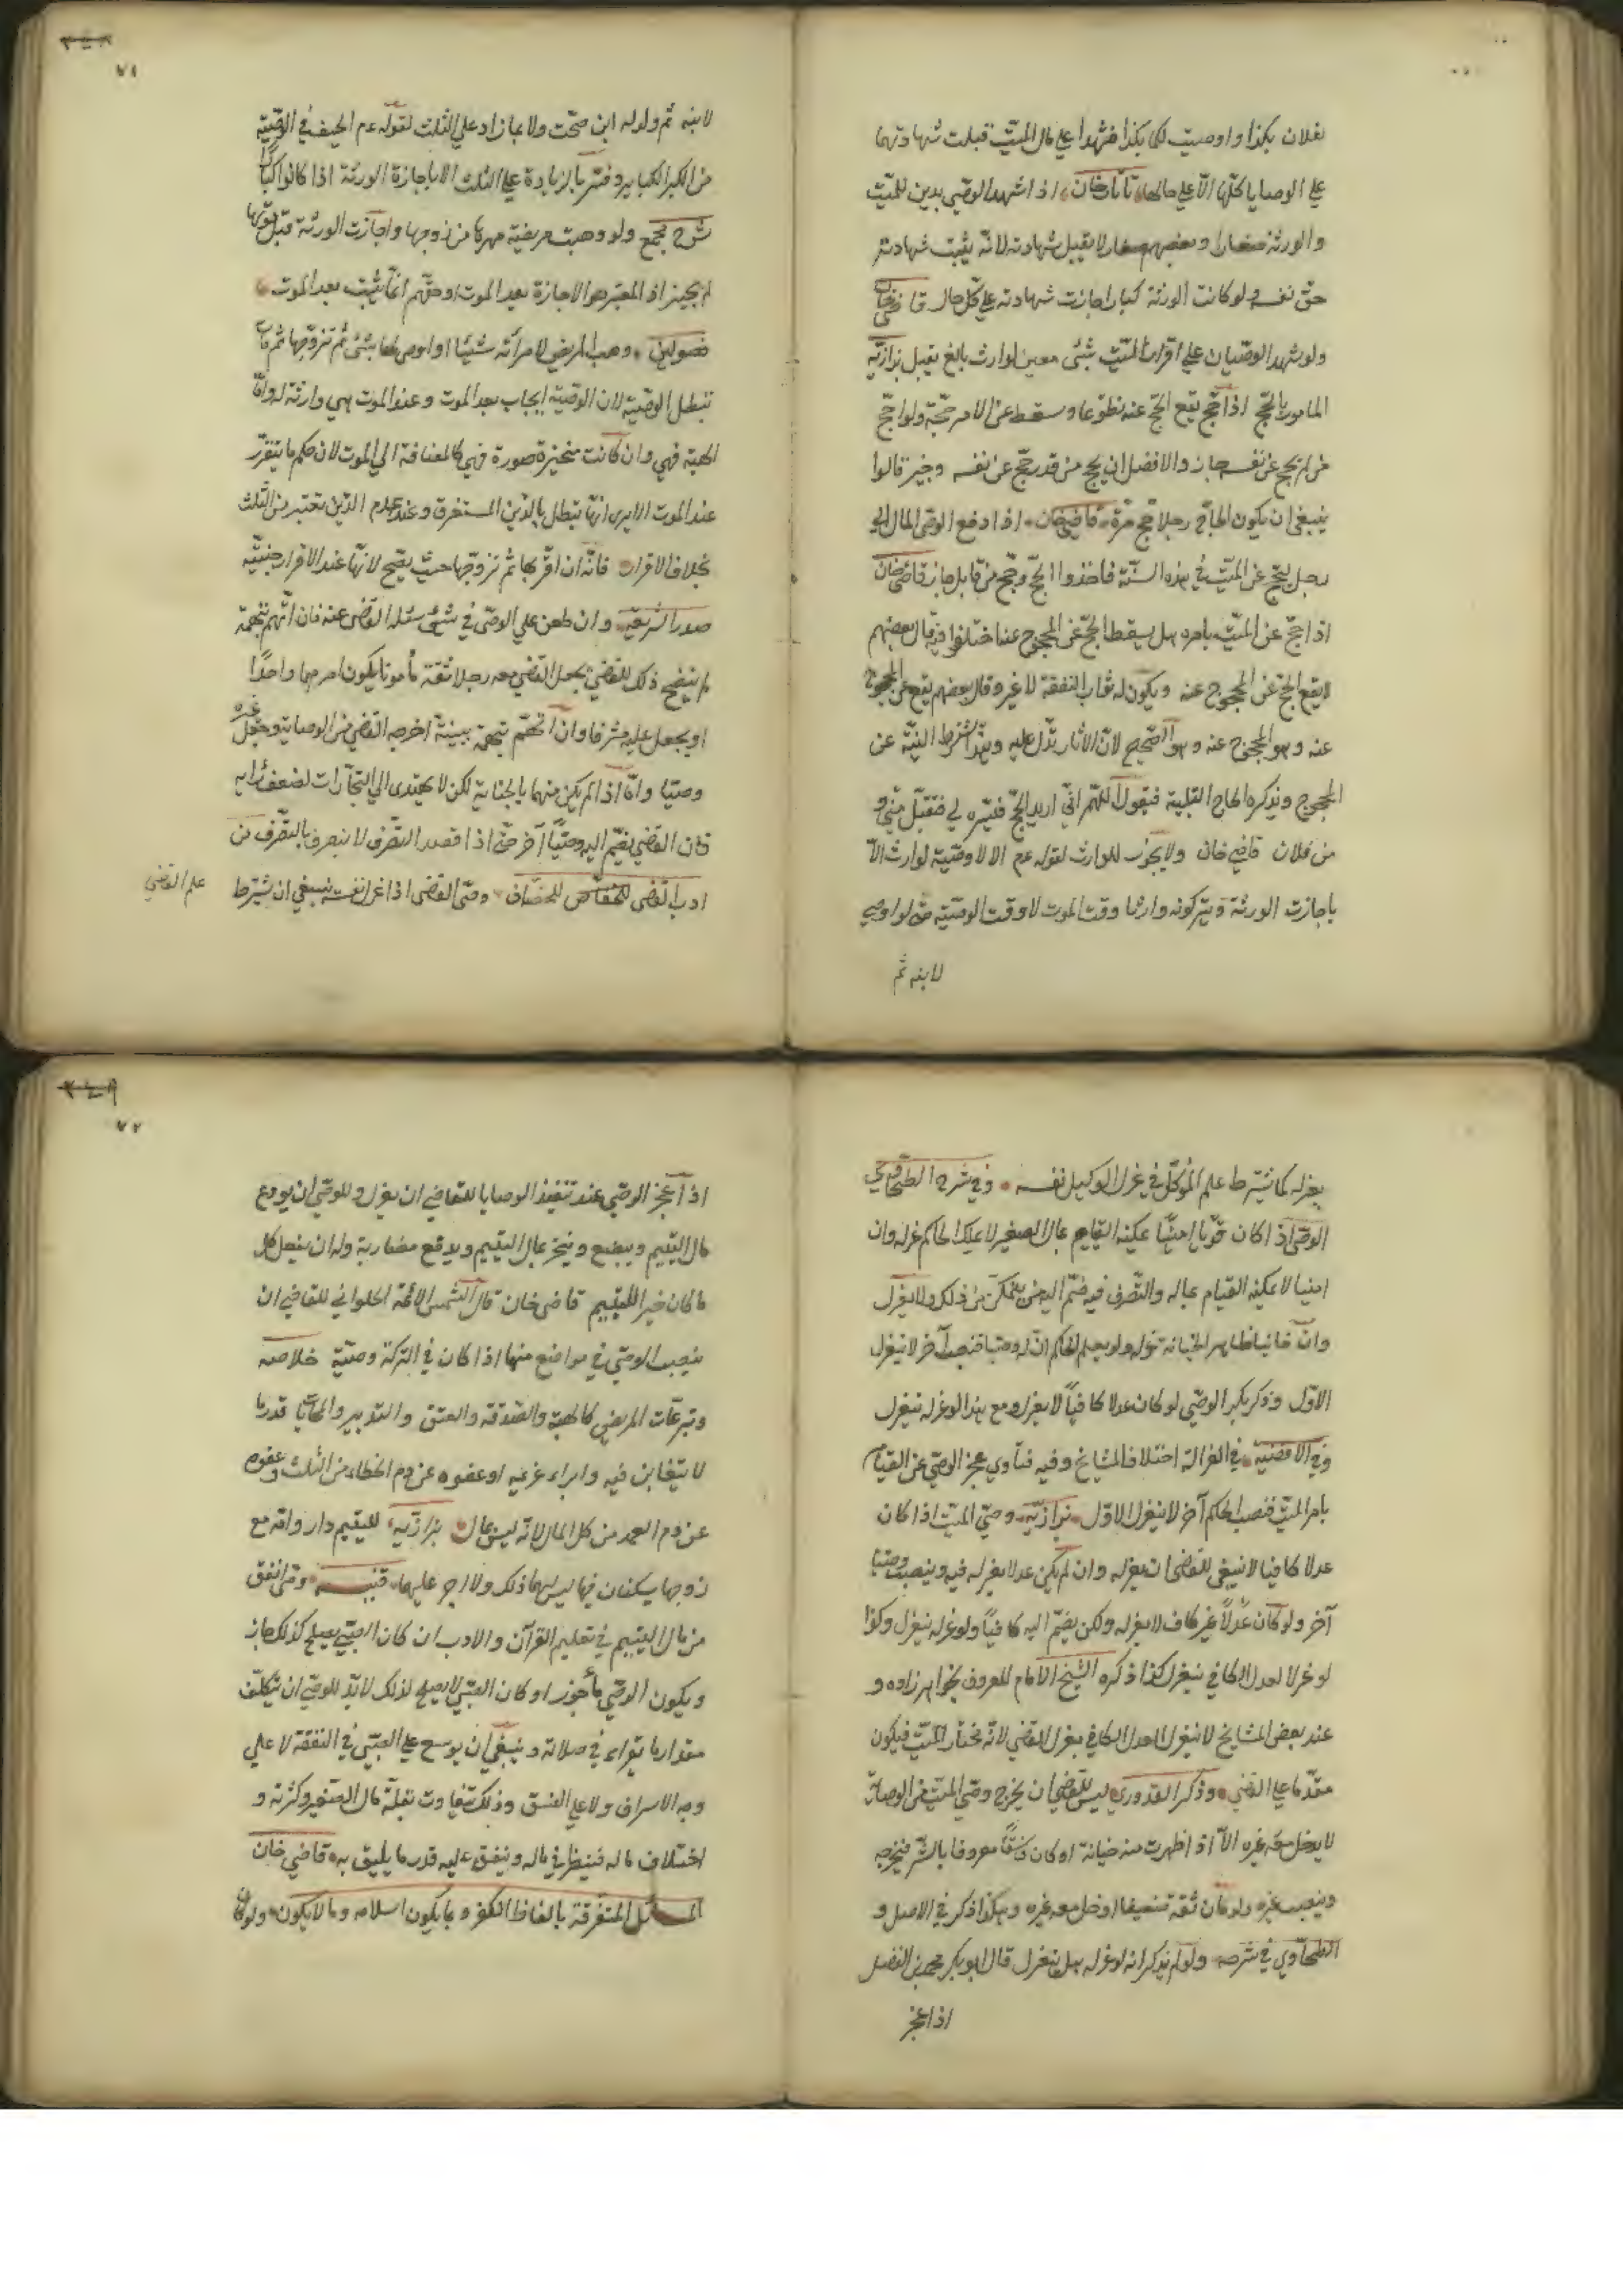 لفلان بكذا واوصيت لك بكذا فشهدا على مال الميّت قبلت شهادتهما
على الوصايا كلّها الّا على حالها تاتارخان اذا شهد الوصّى بدين للميّت
والورثة صغار او بعضهم صغار لا يقبل شهادته لانّه يثبت شهادته
حقّ نفسه ولو كانت الورثة كبارا جازت شهادته على كلّ حال قاضيخان
ولو شهد الوصّيان على اقرار الميّت بشئ معين لوارث بالغ يقبل بزازيّه
المامور بالحجّ اذا حجّ يقع الحجّ عنه تطوّعا وسقط عن الامر حجّة ولو احجّ
من لم يحج عن نفسه جاز والافضل ان يحج من قد حجّ عن نفسه وخير قالوا
ينبغى ان يكون الحاجّ رجلا حج مرّة قاضيخان اذا دفع الوصّى المال الى
رجل ليحجّ عن الميّت فى هذه السنّة فاخذ والحجّ وحجّ من قابل جاز قاضى خان
اذا حجّ عن الميّت بامره هل يسقط الحجّ عن المحجوج عنه اختلفوا فيه قال بعضهم
لا يقع الحجّ عن المحجوج عنه ويكون له ثواب النفقة لا غير وقال بعضهم يقع عن المحجوج
عنه وهو المحجوج عنه وهو الاصّحيح لانّ الاثار تدّل عليه وبهذا اشترط النيّة عن
المحجوج ويذكره الحاج التلبية فيقول اللّهم انّى اريد الحجّ فيسّره لى فتقبّل منّى و
من فلان قاضى خان ولا يجوز للوارث لقوله عم الا لا وصّية لوارث الّا
باجازت الورثة ويتبر كونه وارثا وقت الموت لا وقت الوصّية حتّى لو اوصى
لابنه ثم
٧١
لابنه ثم ولد له ابن صحّت ولا بما زاد على الثلث لقوله عم الحيف فى الوصّية
من اكبر الكبائر وفسّر بالزيادة على الثلث الا باجازة الورثة اذا كانوا كبارا
شرح مجمع ولو وهبت مريضة مهرها من زوجها واجازت الورثة قبل موتها
لم يجيز اذ المعتبر هو الاجازة بعد الموت اذ حقّهم انّما يثبت بعد الموت
فصولين وهب المريض لامرأته شيئا او اوصى لها بشئ ثم تزوّجها ثم مات
تبطل الوصّية لان الوصّية ايجاب بعد الموت وعند الموت هى وارثة له وامّا
الهبة فهى وان كانت منجّزة صورة فهى كالمضافة الى الموت لان حكمها يتقرّر
عند الموت الا يرى انّها تبطل بالدّين المستغرق وعند عدم الدّين تعتبر من الثلث
بخلاف الاقرار فانّه ان اقرّ بها ثم تزوّجها حيث يصّح لانّها عند الاقرار اجنبيّة
صدر الشريعة وان طعن على الوصّى فى شئ سئله القاضى عنه فان اتّهم بتهمة
لم يتضح ذلك للقاضى يجعل القاضى معه رجلا ثقة مأمونا يكون امرهما واحدًا
او يجعل عليه مشرفا وان اتّهم بتهمة ببيّنة اخرجه القاضى من الوصاية وجعل غيره
وصيّا وامّا اذا لم يكن متهما بالخيانة لكن لا يهتدى الى التجارات لضعف رأيه
فان القاضى يضّم اليه وصيًّا آخر حتّى اذا قصد التصّرف لا ينصرف بالتصّرف من
ادب القاضى للخصّاف وصّى القاضى اذا عزل نفسه ينبغى ان يشترط
علم القاضى
بعزله كما يشترط علم الموكّل فى عزل الوكيل نفسه وفى شرح الطحاوى
الوصّى اذا كان قويًّا امينًا يمكنه القيام بمال الصغير لا يملك الحاكم عزله وان
امينا لا يمكنه القيام بماله والتصّرف فيه ضمّ اليه من يتمكّن من ذلك ولا يعزل
وان خائنا ظاهر الخيانة عزله ولو لم يعلم الحاكم انّ له وصيا فنصب آخر لا ينعزل
الاوّل وذكر بكر الوصّى لو كان عدلا كافيًا لا يعزل ومع هذا لو عزله ينعزل
وفى الاقضية فى العزالة اختلاف المشايخ وفيه فتاوى عجز الوصّى عن القيام
بامر الميّت فنصب الحاكم آخر لا ينعزل الاوّل بزازيّه وصّى الميّت اذا كان
عدلا كافيا لا ينبغى للقاضى ان يعزله وان لم يكن عدلا يعزله فيه وينصب وصيّا
آخر ولو كان عدلًا غير كاف لا يعزله ولكن يضّم اليه كافيًا ولو عزله ينعزل وكذا
لو عزلا لعدل الكافى ينعزل كذا ذكره الشيخ الامام المعروف بخواهر زاده و
عند بعض المشايخ لا ينعزل العدل الكافى بعزل القاضى لانّه مختار الميّت فيكون
مقدّما على القاضى وذكر القدورى ليس للقاضى ان يخرج وصّى الميّت عن الوصاية
لا يدخل معه غيره الاّ اذا ظهرت منه خيانة او كان فاسقًا معروفا بالشّر فيخرجه
وينصب غيره ولو كان ثقة ضعيفا ادخل معه غيره وهكذا ذكر فى الاصل و
الطحاوى فى شرحه ولو لم يذكر انه لو عزله هل ينعزل قال ابو بكر محمد بن الفضل
اذا عجز
٧٢
اذا عجز الوصّى عند تنفيذ الوصايا للقاضى ان يعزل وللوصّى ان يودع
مال اليتيم ويبضع ويتجر بمال اليتيم ويدفع مضاربة وله ان يفعل كل
ما كان خيرا لليتيم قاضى خان قال الشمس الائمّة الحلوانى للقاضى ان
ينصب الوصّى فى مواضع منها اذا كان فى التركة وصيّة خلاصه
وتبرعّات المريض كالهبة والصّدقة والعتق والتدبير والمحابا قدر ما
لا يتغابن فيه وابراء غريمه او عفوه عن دم الخطاء من الثلث وعفوه
عن دم العمد من كل المال لانّه ليس بمال بزازيّه لليتيم دار وامّه مع
زوجها يسكنان فيها ليس لهما ذلك ولا اجر عليهما قنيه وصّى انفق
من مال اليتيم فى تعليم القرآن والادب ان كان الصبّى يصلح كذلك جاز
ويكون الوصّى مأجور او كان الصبّى لا يصلح لذلك لا بدّ للوصّى ان يتكلّف
مقدار ما يقراء فى صلاته وينبغى ان يوسع على الصبّى فى النفقة لا على
وجه الاسراف ولا على الضيق وذلك يتفاوت بقلّة مال الصّغير وكثرته و
اختلاف ماله فينظر فى ماله وينفق عليه قدر ما يليق به قاضى خان
المسائل المتفرقة بالفاظ الكفر وما يكون اسلاما وما لا يكون ولو كان